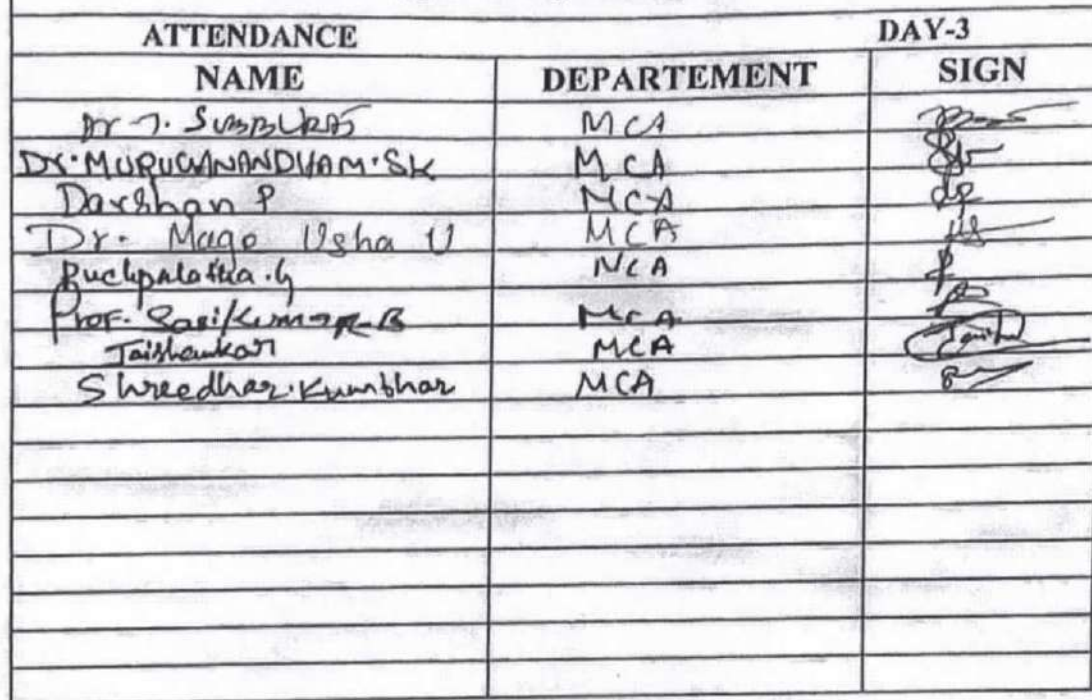 ATTENDANCE DAY-3
NAME DEPARTEMENT SIGN
Dr T. SUBBURAJ MCA
Dr. MURUGANANDHAM. SK MCA
Darshan P MCA
Dr. Mago Usha U MCA
MCA
Prof. Sasikumar B MCA
Jaishankar MCA
Shreedhar. Kumbhar MCA